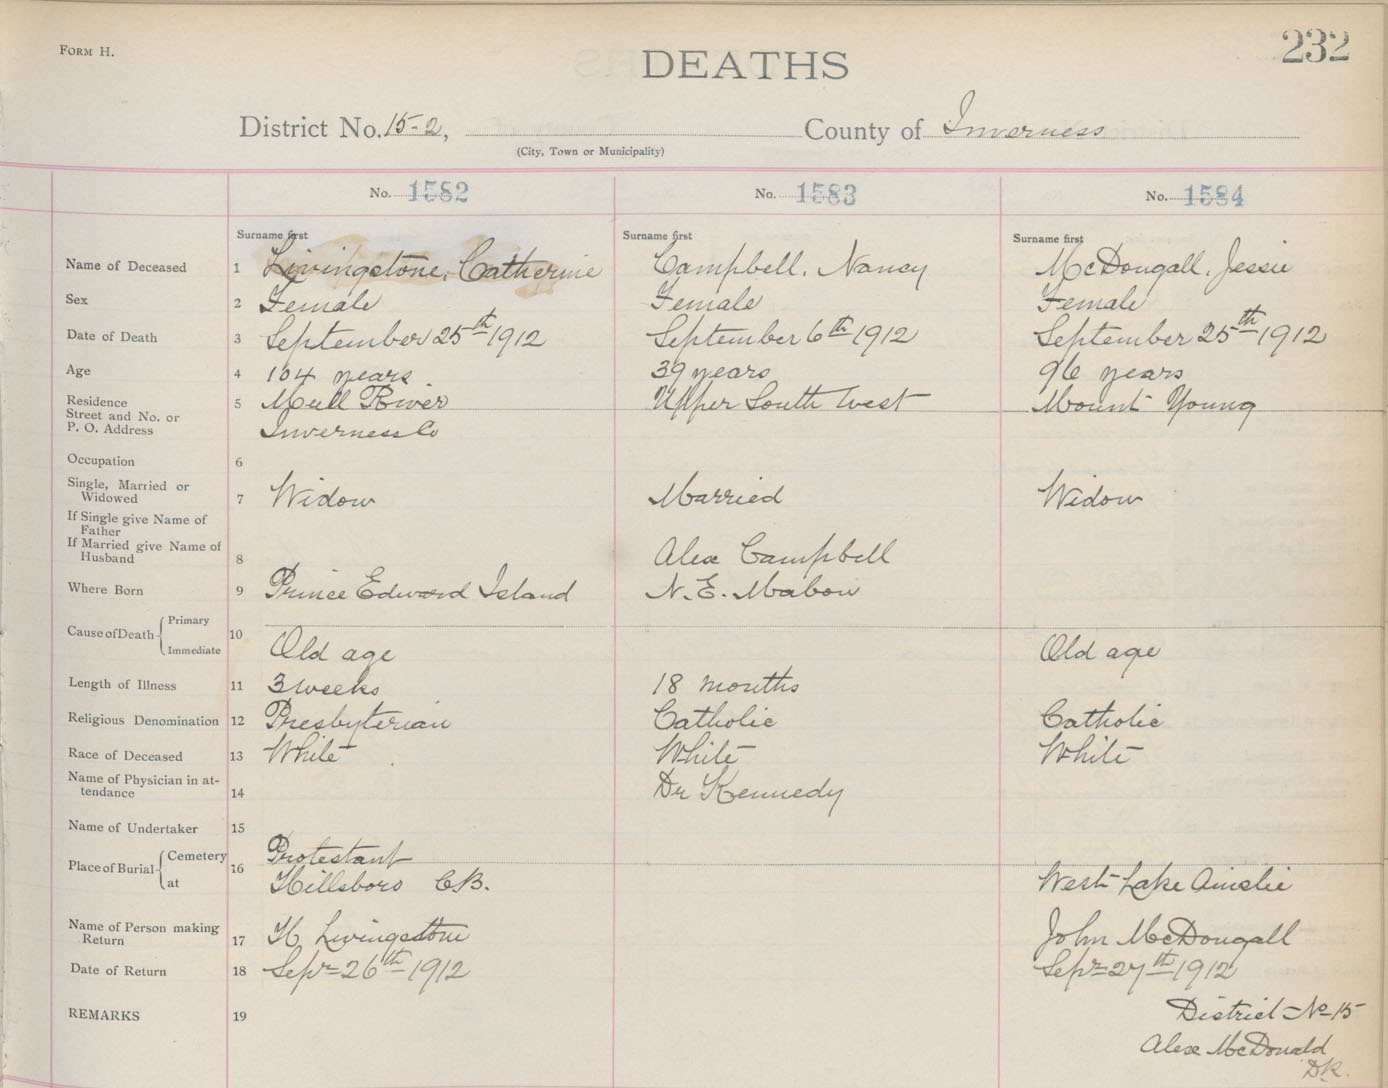 FORM H.
DEATHS
232
District No. 15-2, County of Inverness
(City, Town or Municipality)
No. 1582 No. 1583 No. 1584
Surname first Surname first Surname first
Name of Deceased 1 Livingstone, Catherine Campbell, Nancy McDougall, Jessie
Sex 2 Female Female Female
Date of Death 3 September 25th 1912 September 6th 1912 September 25th 1912
Age 4 104 years 39 years 96 years
Residence 5 Mull River Upper South West Mount Young
Street and No. or
P. O. Address Inverness Co
Occupation 6
Single, Married or
Widowed 7 Widow Married Widow
If Single give Name of
Father
If Married give Name of
Husband 8 Alex Campbell
Where Born 9 Prince Edward Island N. E. Mabou
Primary
Cause of Death 10
Immediate Old age Old age
Length of Illness 11 3 weeks 18 months
Religious Denomination 12 Presbyterian Catholic Catholic
Race of Deceased 13 White White White
Name of Physician in at-
tendance 14 Dr Kennedy
Name of Undertaker 15
Cemetery Protestant
Place of Burial 16
at Hillsboro C.B. West Lake Ainslie
Name of Person making
Return 17 H Livingstone John McDougall
Date of Return 18 Sept 26th 1912 Sept 27th 1912
REMARKS 19 District No 15
Alex McDonald
D.R.